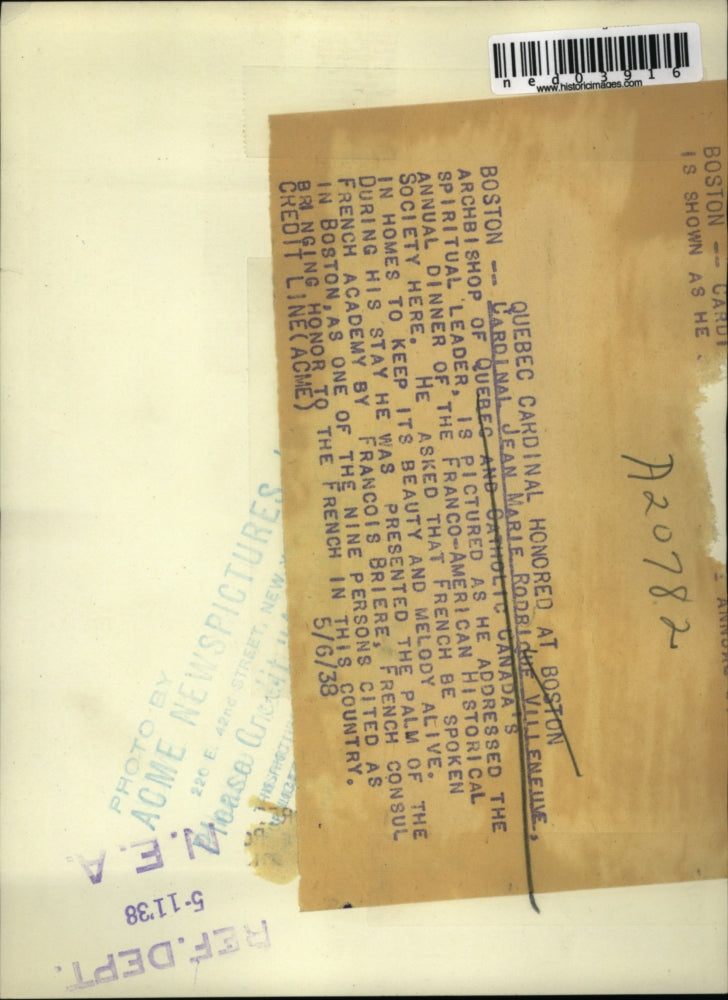 ned03916
www.historicimages.com
BOSTON -- CARDI
IS SHOWN AS HE
A20782
QUEBEC CARDINAL HONORED AT BOSTON
BOSTON -- CARDINAL JEAN MARIE RODRIGUE VILLENEUVE,
ARCHBISHOP OF QUEBEC AND CATHOLIC CANADA'S
SPIRITUAL LEADER, IS PICTURED AS HE ADDRESSED THE
ANNUAL DINNER OF THE FRANCO-AMERICAN HISTORICAL
SOCIETY HERE. HE ASKED THAT FRENCH BE SPOKEN
IN HOMES TO KEEP ITS BEAUTY AND MELODY ALIVE.
DURING HIS STAY HE WAS PRESENTED THE PALM OF THE
FRENCH ACADEMY BY FRANCOIS BRIERE, FRENCH CONSUL
IN BOSTON, AS ONE OF THE NINE PERSONS CITED AS
BRINGING HONOR TO THE FRENCH IN THIS COUNTRY.
CREDIT LINE (ACME) 5/6/38
PHOTO BY
ACME NEWSPICTURES
220 E. 42nd STREET, NEW
Please
N.E.A.
5-11'38
REF. DEPT.